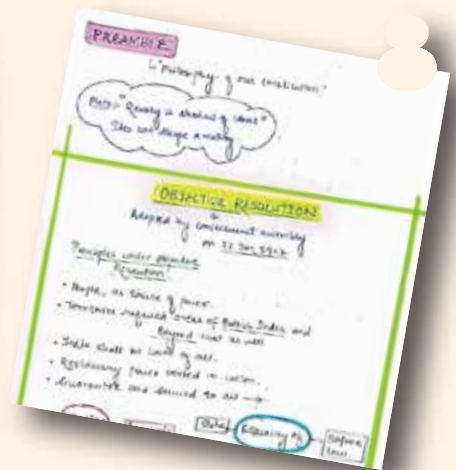 PREAMBLE
"Philosophy of our Constitution"
Plato:- "Reality is shadow of ideas"
Idea can shape reality
OBJECTIVE RESOLUTION
Adopted by constituent assembly
on 22 Jan 1947
Principles under objective
Resolution
• People, as source of power.
• Territories required areas of British India and
Beyond that as well
• India shall be land of all.
• Residuary power vested in union.
• Guarantee and secured to all →
State
Equality of
Before
law